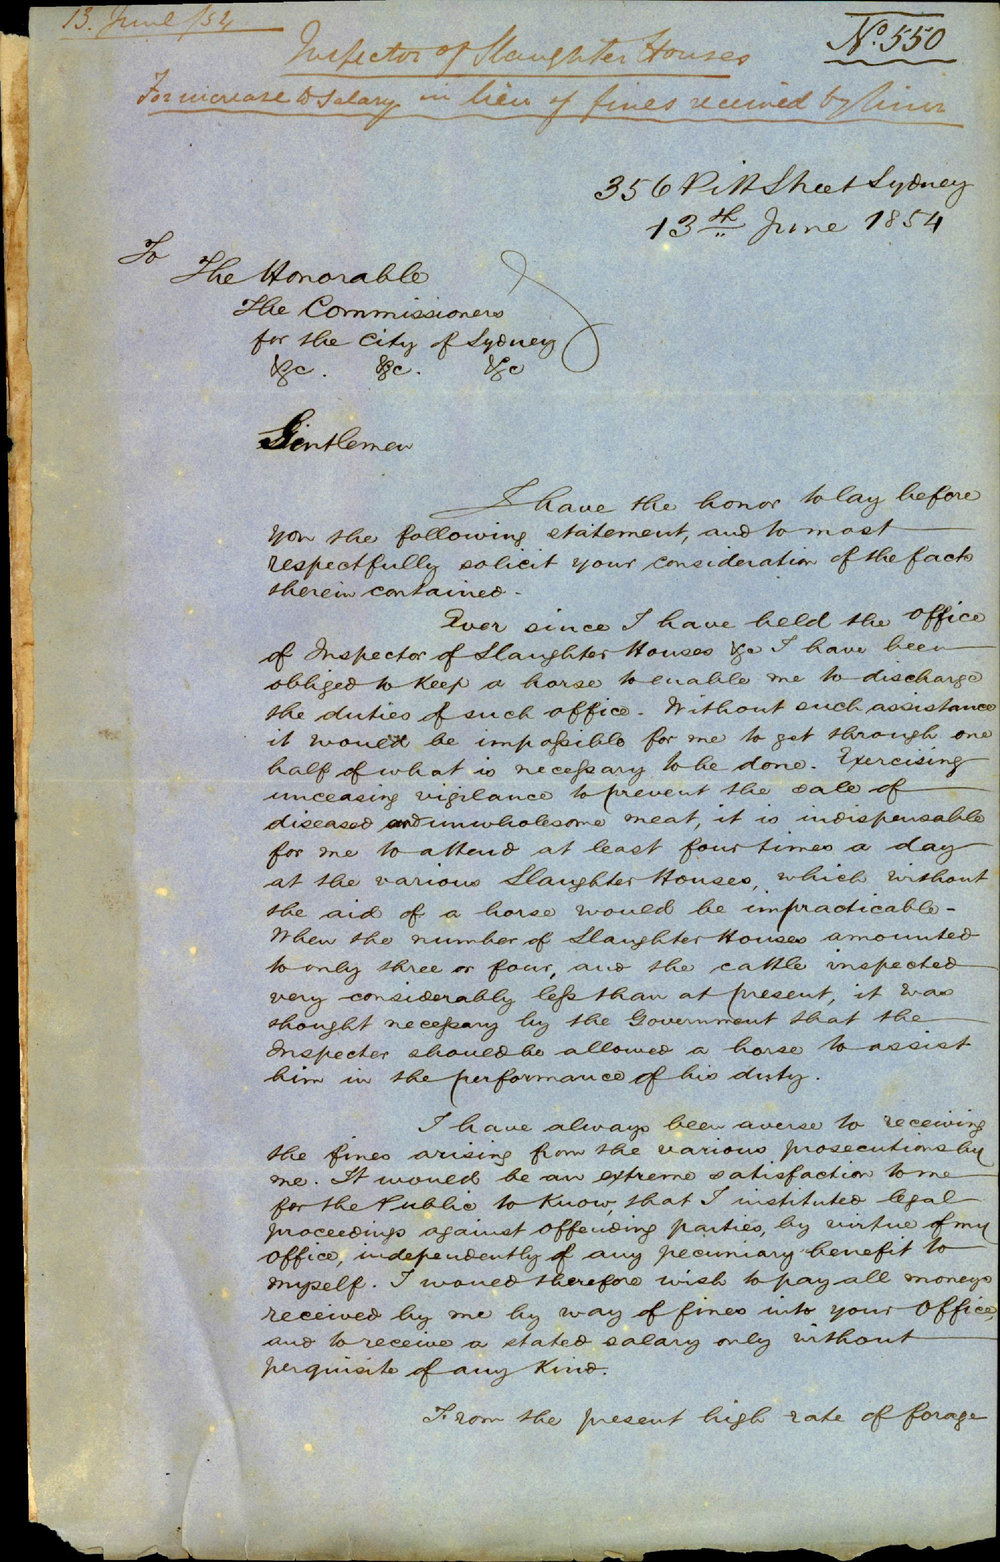 13. June /54
No. 550
Inspector of Slaughter Houses
For increase to Salary in lieu of fines received by him
356 Pitt Street Sydney
13th June 1854
To
The Honorable
The Commissioners
for the City of Sydney
&c. &c. &c
Gentlemen
I have the honor to lay before
you the following statement, and to most
respectfully solicit your consideration of the facts
therein contained -
Ever since I have held the office
of Inspector of Slaughter Houses &c I have been
obliged to keep a horse to enable me to discharge
the duties of such office. Without such assistance
it would be impossible for me to get through one
half of what is necessary to be done. Exercising
unceasing vigilance to prevent the sale of
diseased and unwholesome meat, it is indispensable
for me to attend at least four times a day
at the various Slaughter Houses, which without
the aid of a horse would be impracticable -
When the number of Slaughter Houses amounted
to only three or four, and the cattle inspected
very considerably less than at present, it was
thought necessary by the Government that the
Inspector should be allowed a horse to assist
him in the performance of his duty.
I have always been averse to receiving
the fines arising from the various prosecutions by
me. It would be an extreme satisfaction to me
for the Public to know, that I instituted legal
proceedings against offending parties, by virtue of my
office, independently of any pecuniary benefit to
myself. I would therefore wish to pay all moneys
received by me by way of fines into your Office,
and to receive a stated salary only without
perquisite of any kind.
From the present high rate of forage